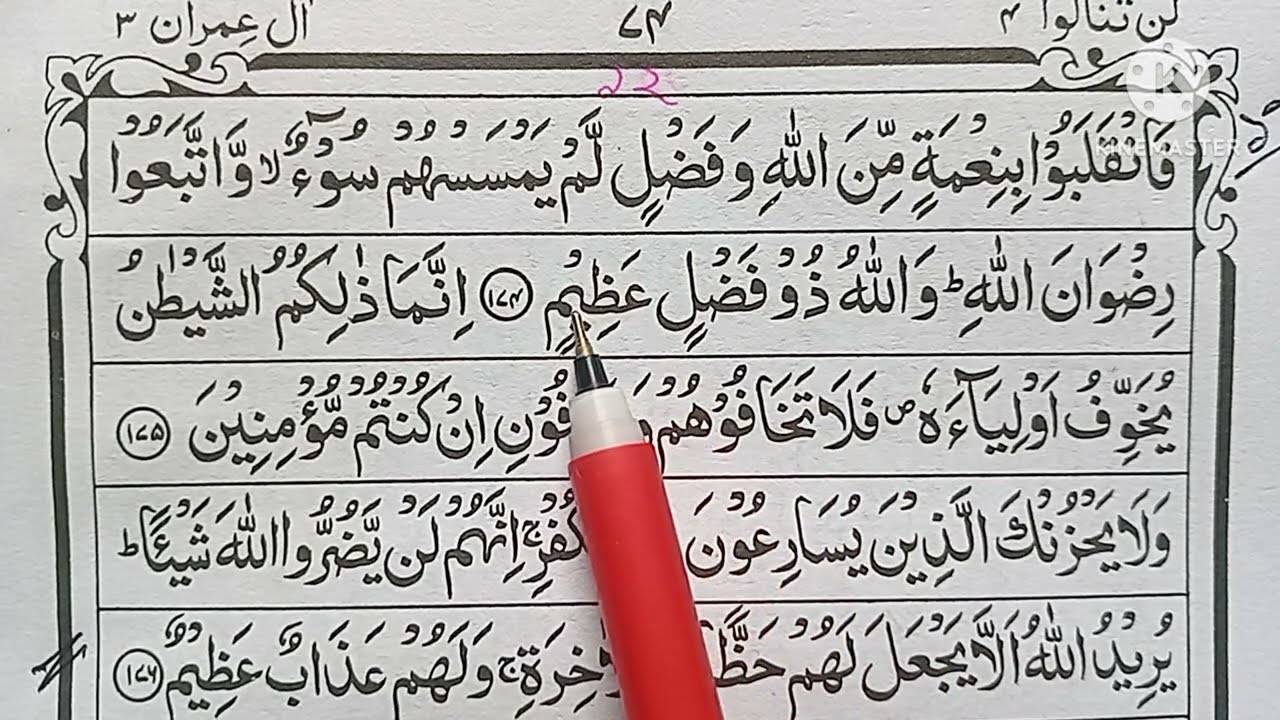 لن تنالوا ۴ ۷۴ اٰل عِمران ۳
۲۲
KINEMASTER
فَانْقَلَبُوْا بِنِعْمَةٍ مِّنَ اللّٰهِ وَفَضْلٍ لَّمْ يَمْسَسْهُمْ سُوْٓءٌ ۙ وَّاتَّبَعُوْا
رِضْوَانَ اللّٰهِ ؕ وَاللّٰهُ ذُوْ فَضْلٍ عَظِيْمٍ ﴿۱۷۴﴾ اِنَّمَا ذٰلِكُمُ الشَّيْطٰنُ
يُخَوِّفُ اَوْلِيَآءَهٗ ۪ فَلَا تَخَافُوْهُمْ فُوْنِ اِنْ كُنْتُمْ مُّؤْمِنِيْنَ ﴿۱۷۵﴾
وَلَا يَحْزُنْكَ الَّذِيْنَ يُسَارِعُوْنَ كُفْرِ ۚ اِنَّهُمْ لَنْ يَّضُرُّوا اللّٰهَ شَيْئًا ؕ
يُرِيْدُ اللّٰهُ اَلَّا يَجْعَلَ لَهُمْ حَظًّا خِرَةِ ۚ وَلَهُمْ عَذَابٌ عَظِيْمٌ ﴿۱۷۶﴾